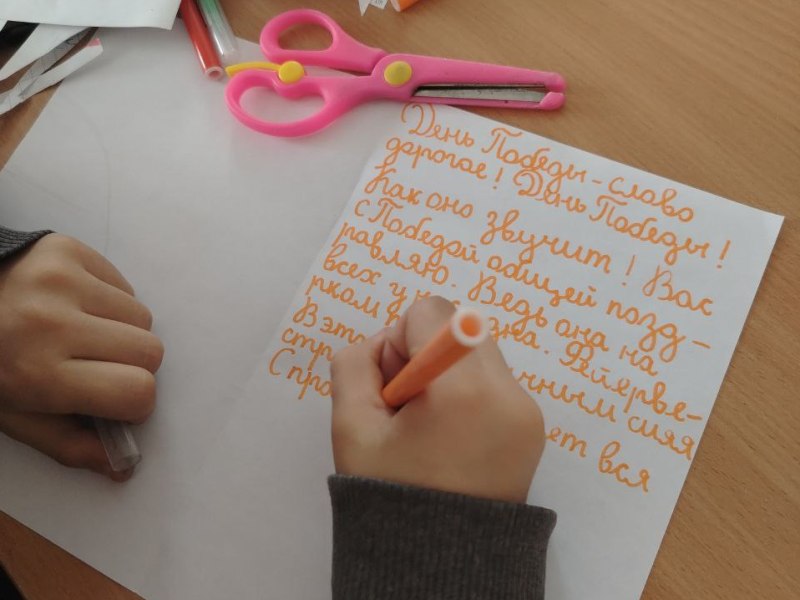 День Победы - слово
дорогое! День Победы!
Как оно звучит! Вас
с Победой общей позд-
равляю. Ведь она на
всех у нас одна. Фейерве-
рком
В эт сияя
стр ет вся